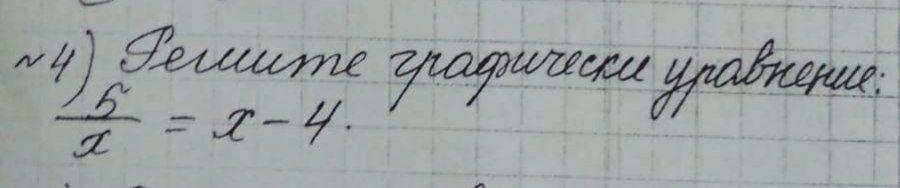 №4) Решите графически уравнение:
5/x = x - 4.